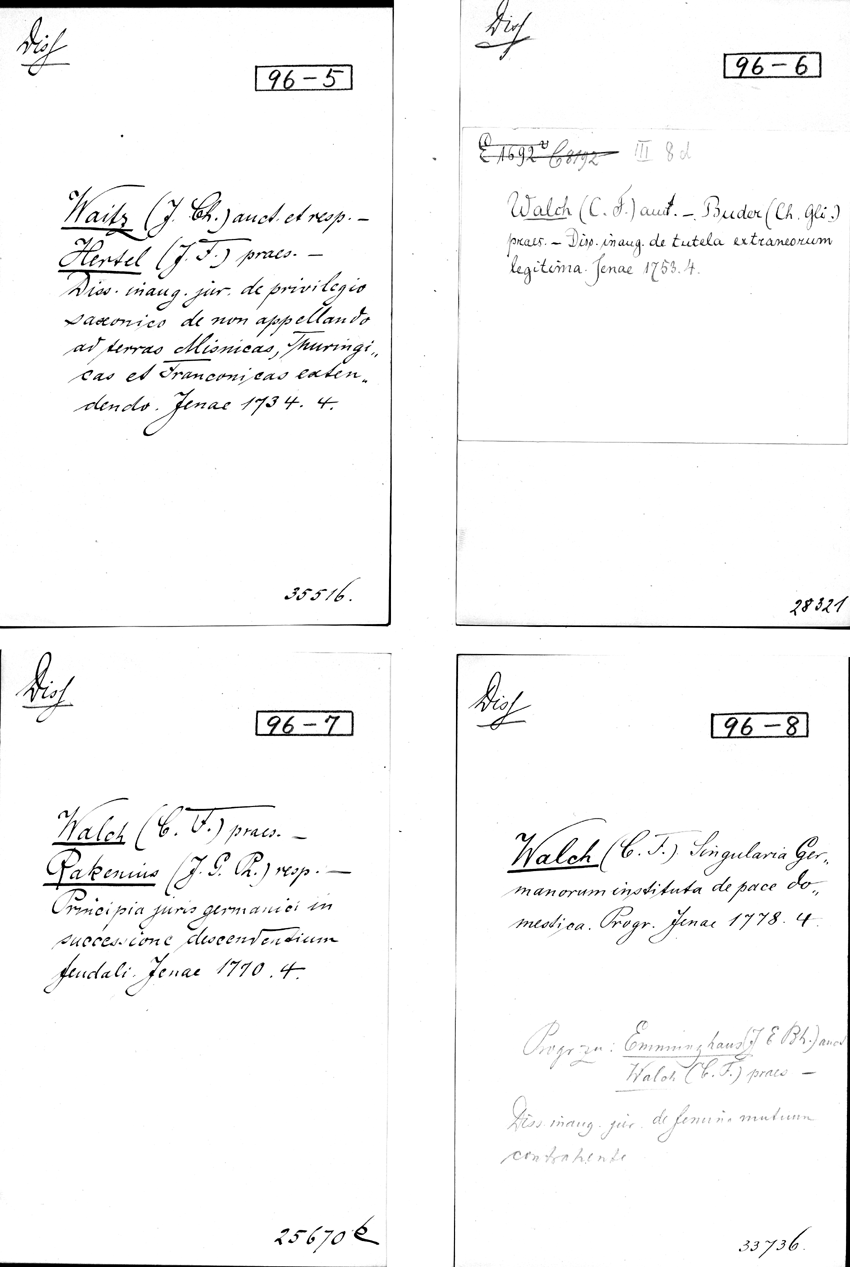 Diss
96-5
Waitz (J. Ch.) auct. et resp. —
Hertel (J. F.) praes. —
Diss. inaug. jur. de privilegio
saxonico de non appellando
ad terras Misnicas, Thuringi„
cas et Franconicas exten„
dendo. Jenae 1734. 4.
35516.
Diss
96-6
E 1692 v C8192 III 8 d
Walch (C. F.) auct. — Buder (Ch. Gli.)
praes. — Disp. inaug. de tutela extraneorum
legitima. Jenae 1753. 4.
28321
Diss
96-7
Walch (C. F.) praes. —
Rakenius (J. G. R.) resp. —
Principia juris germanici in
successione descendentium
feudali. Jenae 1770. 4.
25670
Diss
96-8
Walch (C. F.) Singularia Ger„
manorum instituta de pace do„
mestica. Progr. Jenae 1778. 4.
Progr zu: Emminghaus (J E Bh.) auct
Walch (C. F.) praes —
Diss. inaug. jur. de femina mutuum
contrahente
33736.